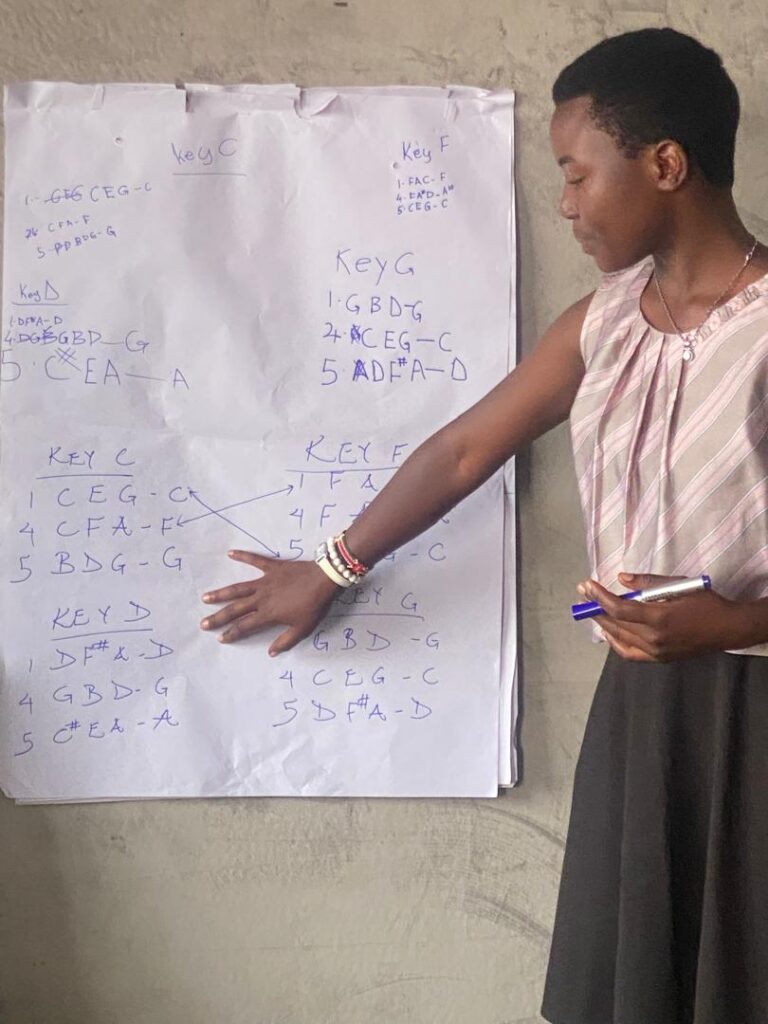 Key C
1. CEG-C
CFA-F
5- BDG-G
Key F
1. FAC-F
4. FA#D-A#
5 CEG-C
Key D
1. DF#A-D
4. GBD-G
5. C EA-A
Key G
1. GBD-G
4. CEG-C
5. DF#A-D
KEY C
1 CEG-C
4 CFA-F
5 BDG-G
KEY F
1 FA
4 F
5 G-C
KEY D
1 DF#A-D
4 GBD-G
5 C#EA-A
KEY G
GBD-G
4 CEG-C
5 DF#A-D